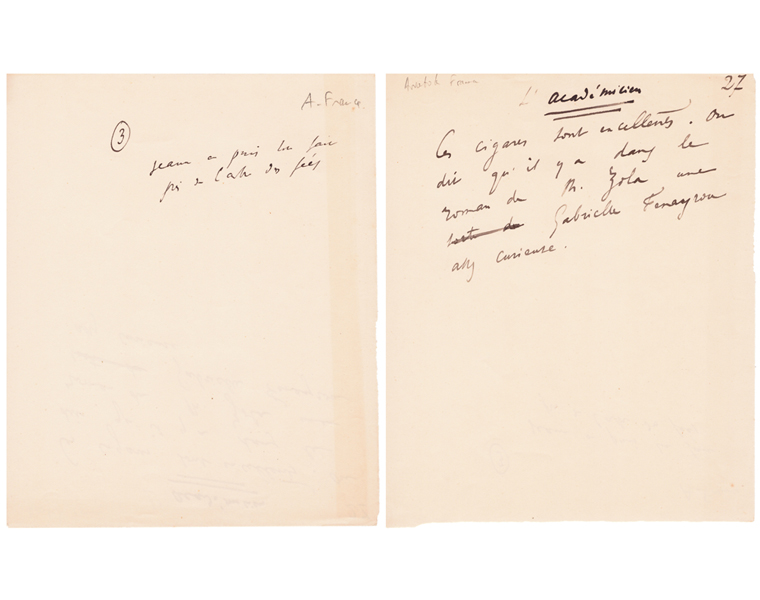 A. France.
3
Jeanne en prière
près de l'arbre des fées
Anatole France
27
L'académicien
Ces cigares sont excellents. On
dit qu'il y a dans le
roman de M. Zola une
sorte de Gabrielle Fenayrou
assez curieuse.